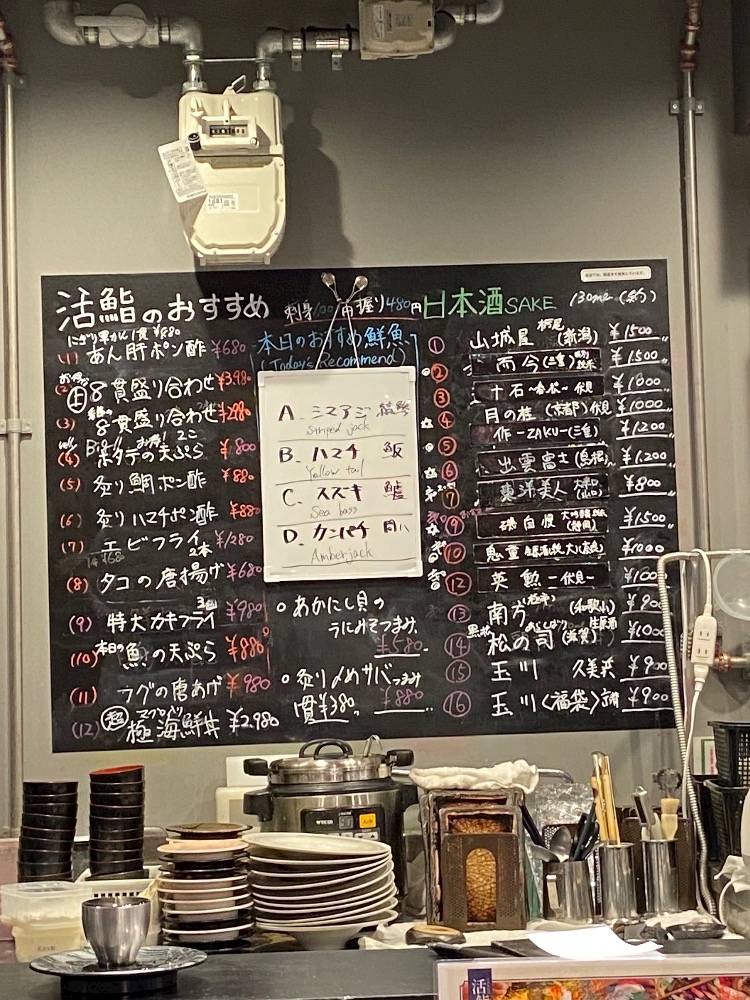 活鮨のおすすめ
(1) あん肝ポン酢 ¥680
8貫盛り合わせ ¥3,980
(3) 8貫盛り合わせ
(4) ホタテの天ぷら ¥800
(5) 炙り鯛ポン酢 ¥880
(6) 炙りハマチポン酢 ¥880
(7) エビフライ 2本 ¥1,280
(8) タコの唐揚げ ¥680
(9) 特大カキフライ ¥980
(10) 本日の魚の天ぷら ¥880
(11) フグの唐あげ ¥980
(12) 超 極海鮮丼 ¥2,980
握り480円
本日のおすすめ鮮魚
(Today's Recommend)
A. シマアジ
Striped jack
B. ハマチ
Yellow tail
C. スズキ 鱸
Sea bass
D. カンパチ
Amberjack
○ あかにし貝の
うにみそつまみ
¥580
○ 炙り〆サバつまみ
1貫¥380 ¥880
日本酒 SAKE 130ml (約)
① 山城屋 (新潟) ¥1500
② 而今 (三重) ¥1500
③ 十石 伏見 ¥1000
④ 月の桂 (京都) 伏見 ¥1000
⑤ 作 -ZAKU- (三重) ¥1,200
⑥ 出雲富士 (島根) ¥1,200
⑦ 東洋美人 ¥800
⑨ 磯自慢 (静岡) ¥1500
⑩ ¥1000
⑫ 英勲 -伏見-
⑬ 南方 (和歌山)
⑭ 松の司 (滋賀)
⑮ 玉川 久美浜 ¥900
⑯ 玉川〈福袋〉 ¥900
活鮨